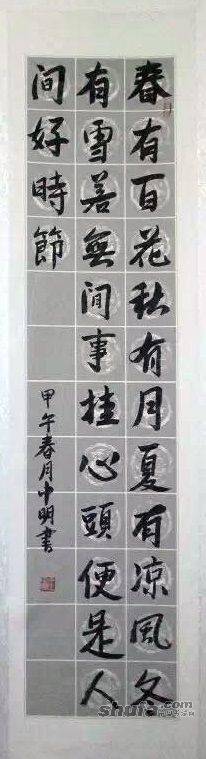 春有百花秋有月夏有凉風冬
有雪善無間事挂心頭便是人
間好時節
甲午春月中明書
shufa.com